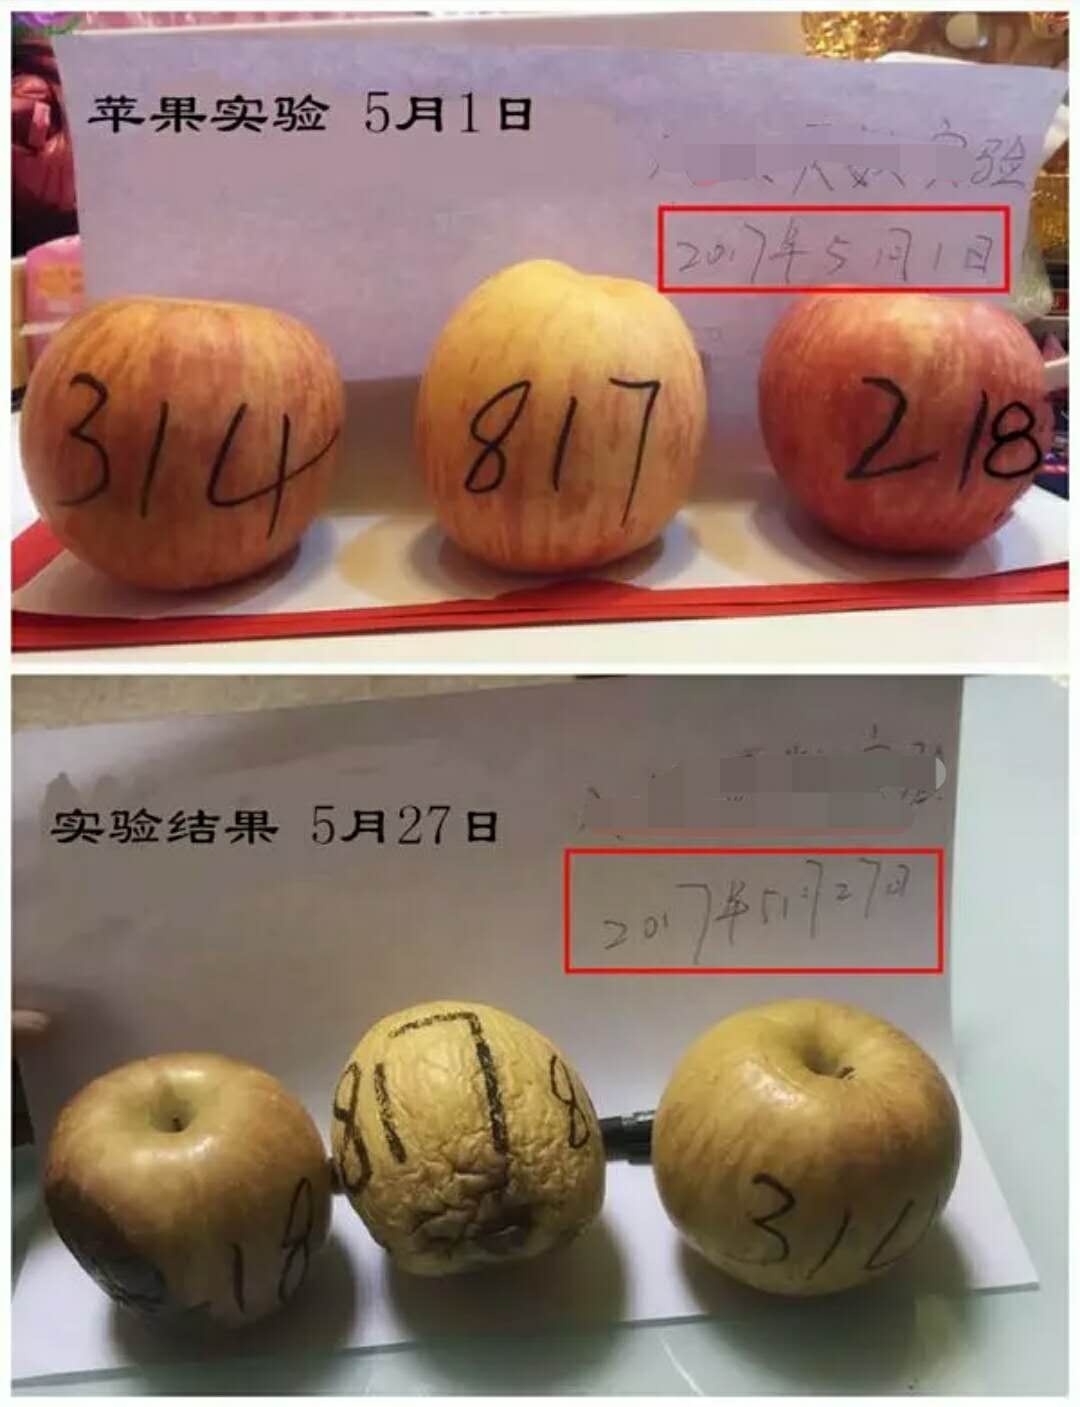 苹果实验 5月1日
实验
2017年5月1日
314
817
218
实验结果 5月27日
2017年5月27日
18
817
8
31